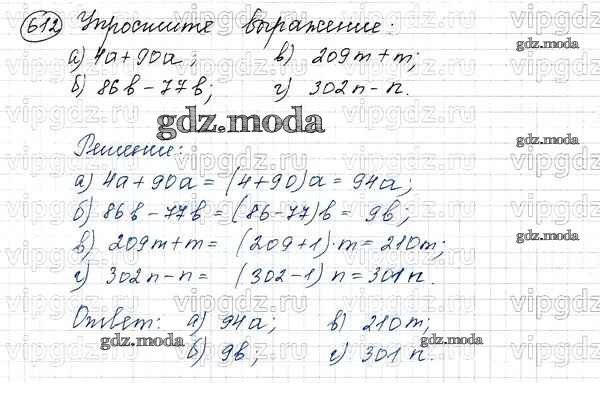 612 Упростите выражение:
а) 4a+90a; в) 209m+m;
б) 86b-77b; г) 302n-n.
gdz.moda
Решение:
а) 4a+90a=(4+90)a=94a;
б) 86b-77b=(86-77)b=9b;
в) 209m+m=(209+1)·m=210m;
г) 302n-n=(302-1)n=301n.
Ответ: а) 94a; в) 210m;
б) 9b; г) 301n.
gdz.moda
gdz.moda
gdz.moda
gdz.moda
gdz.moda
vipgdz.ru